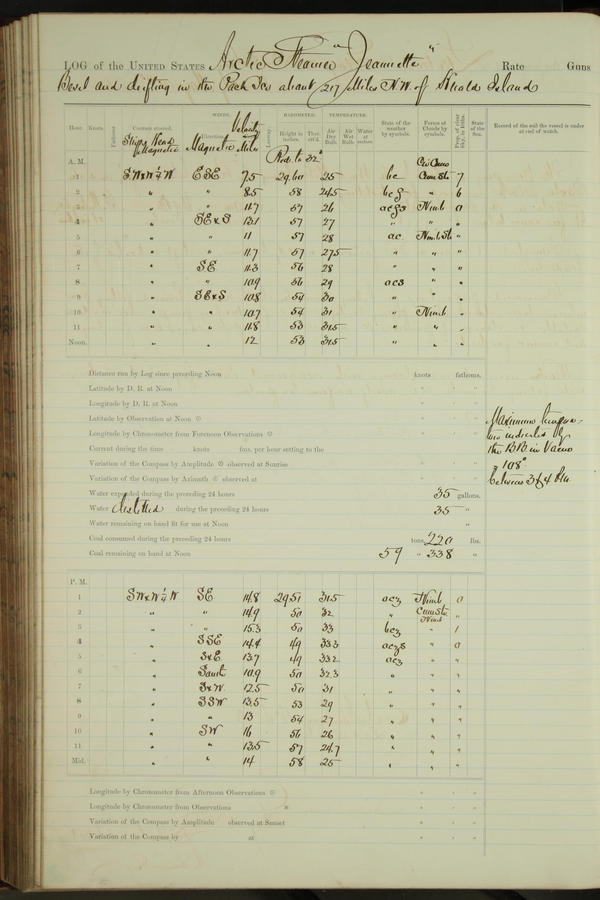 LOG of the UNITED STATES Arctic Steamer "Jeannette" Rate Guns
Beset and drifting in the Pack Ice about 217 Miles N.W. of Herald Island
WINDS. BAROMETER. TEMPERATURE.
Hour. Knots. Fathoms. Courses steered. Direction. Velocity Leeway. Height in inches. Ther. att'd. Air Dry Bulb. Air Wet Bulb. Water at surface. State of the weather by symbols. Forms of Clouds by symbols. Prop. of clear sky, in tenths. State of the Sea. Record of the sail the vessel is under at end of watch.
Ship's Head Magnetic Magnetic Miles
A. M. Red. to 32° Cir Cum
1 SWxW¼W ESE 7.5 29.60 25 bc Cum St. 7
2 " " 8.5 58 24.5 " 6
3 " " 11.7 57 26 Nimb 0
4 " SExS 13.1 57 27 " " "
5 " " 11 57 28 Nimb St. "
6 " " 11.7 57 27.5 " " "
7 " SE 11.3 56 28 " " "
8 " " 10.9 56 29 " "
9 " SExS 10.8 54 30 " " "
10 " " 10.7 54 31 " Nimb "
11 " " 11.8 53 31.5 " " "
Noon. " " 12 53 31.5 " " "
Distance run by Log since preceding Noon knots fathoms.
Latitude by D. R. at Noon ° ' "
Longitude by D. R. at Noon ° ' "
Latitude by Observation at Noon ° ' "
Longitude by Chronometer from Forenoon Observations ° ' "
Current during the time knots fms. per hour setting to the
Variation of the Compass by Amplitude observed at Sunrise ° ' "
Variation of the Compass by Azimuth observed at ° ' "
Maximum tempera-
ture indicated by
the B.B. in Vacuo
108°
between 3 & 4 P.M.
Water expended during the preceding 24 hours 35 gallons.
Water distilled during the preceding 24 hours 35 "
Water remaining on hand fit for use at Noon "
Coal consumed during the preceding 24 hours tons, 220 lbs.
Coal remaining on hand at Noon 59 " 338 "
P. M.
1 SWxW¼W SE 14.8 29.51 31.5 Nimb 0
2 " " 14.9 50 32 " Cum St. Nimb "
3 " " 15.3 50 33 " 1
4 " SSE 14.4 49 33.3 " 0
5 " SxE 13.7 49 33.2 " "
6 " South 10.9 50 32.3 " " "
7 " SxW 12.5 50 31 " " "
8 " SSW 13.5 53 29 " " "
9 " " 13 54 27 " " "
10 " SW 16 56 26 " " "
11 " " 13.5 57 24.7 " " "
Mid. " " 14 58 25 " " "
Longitude by Chronometer from Afternoon Observations ° ' "
Longitude by Chronometer from Observations ° ' "
Variation of the Compass by Amplitude observed at Sunset ° ' "
Variation of the Compass by at ° ' "